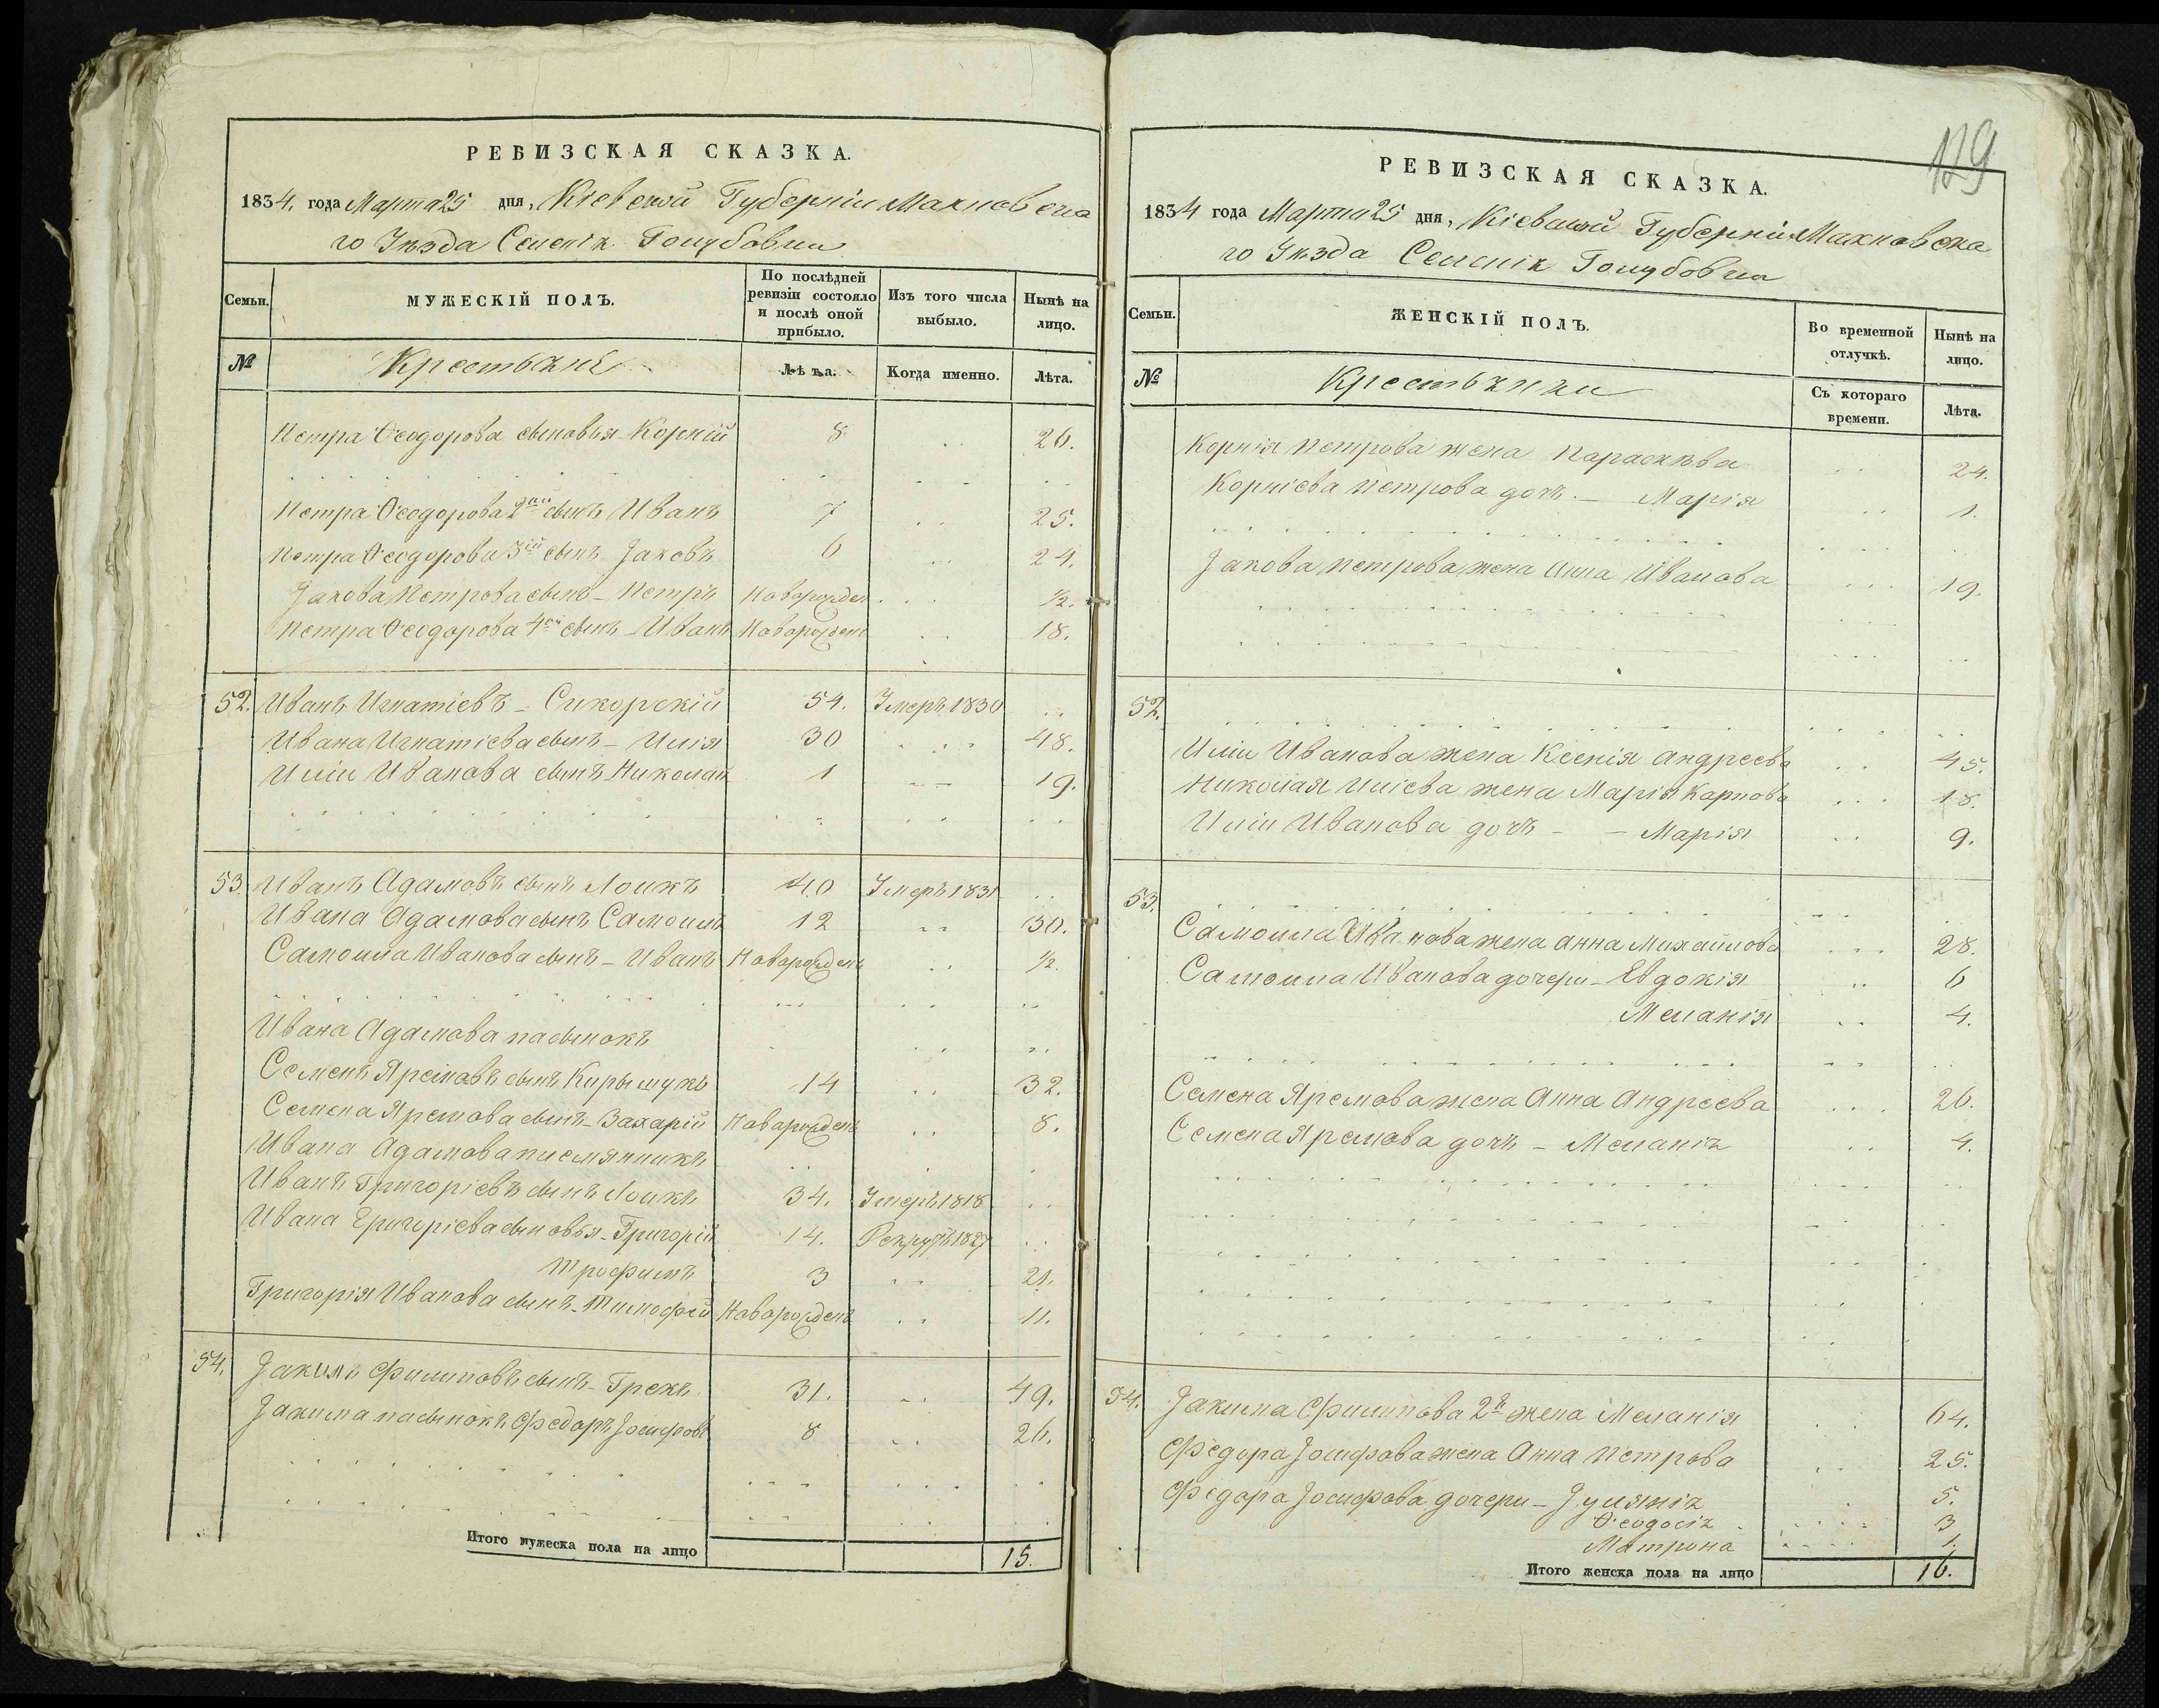 РЕВИЗСКАЯ СКАЗКА.
1834. года Марта 25 дня, Кіевской Губерніи Махновска
го Уѣзда Селенія Голубовки
Семьи.
МУЖЕСКІЙ ПОЛЪ.
По послѣдней ревизіи состояло и послѣ оной прибыло.
Изъ того числа выбыло.
Нынѣ на лицо.
№ Крестьяне Лѣта. Когда именно. Лѣта.
Петра Ѳеодорова сыновья Корній 8 26.
Петра Ѳеодорова 2ой сынъ Иванъ 7 25.
Петра Ѳеодорова 3ій сынъ Іаковъ 6 24.
Іакова Петрова сынъ - Петръ Новорожден ½.
Петра Ѳеодорова 4ой сынъ - Иванъ Новорожденъ 18.
52. Иванъ Игнатіевъ - Сикорскій 54. Умеръ 1830
Ивана Игнатіева сынъ - Илія 30 48.
Иліи Иванова сынъ Николай 1 19.
53. Иванъ Адамовъ сынъ Лоикъ 40 Умеръ 1831
Ивана Адамова сынъ Самоилъ 12 30.
Самоила Иванова сынъ - Иванъ Новорожденъ ½.
Ивана Адамова пасынокъ
Семенъ Яремовъ сынъ Кирышукъ 14 32.
Семена Яремова сынъ - Захарій Новорожденъ 8.
Ивана Адамова племянникъ
Иванъ Григоріевъ сынъ Лоикъ 34. Умеръ 1818
Ивана Григоріева сыновья - Григорій 14. Рекрутъ 1827
Трофимъ 3 21.
Григорія Иванова сынъ - Тимофей Новорожденъ 11.
54. Іакимъ Филиповъ сынъ - Грекъ 31. 49.
Іакима пасынокъ Федоръ Іосифовъ 8 26.
Итого мужеска пола на лицо 15.
129
РЕВИЗСКАЯ СКАЗКА.
1834 года Марта 25 дня, Кіевской Губерніи Махновска
го Уѣзда Селенія Голубовки
Семьи.
ЖЕНСКІЙ ПОЛЪ.
Во временной отлучкѣ.
Нынѣ на лицо.
№ Крестьянки Съ котораго времени. Лѣта.
Корнія Петрова жена Параскѣва 24.
Корніева Петрова дочь. - Марія 1.
Іакова Петрова жена Анна Иванова 19.
52.
Иліи Иванова жена Ксенія Андреева 45.
Николая Иліева жена Марія Карпова 18.
Иліи Иванова дочь - - Марія 9.
53.
Самоила Иванова жена Анна Михайлова 28.
Самоила Иванова дочери - Евдокія 6
Меланія 4.
Семена Яремова жена Анна Андреева 26.
Семена Яремова дочь - Меланія 4.
54. Іакима Филипова 2я жена Меланія 64.
Федора Іосифова жена Анна Петрова 25.
Федора Іосифова дочери - Іуліанія 5.
Ѳеодосія 3
Матрона 1.
Итого женска пола на лицо 16.